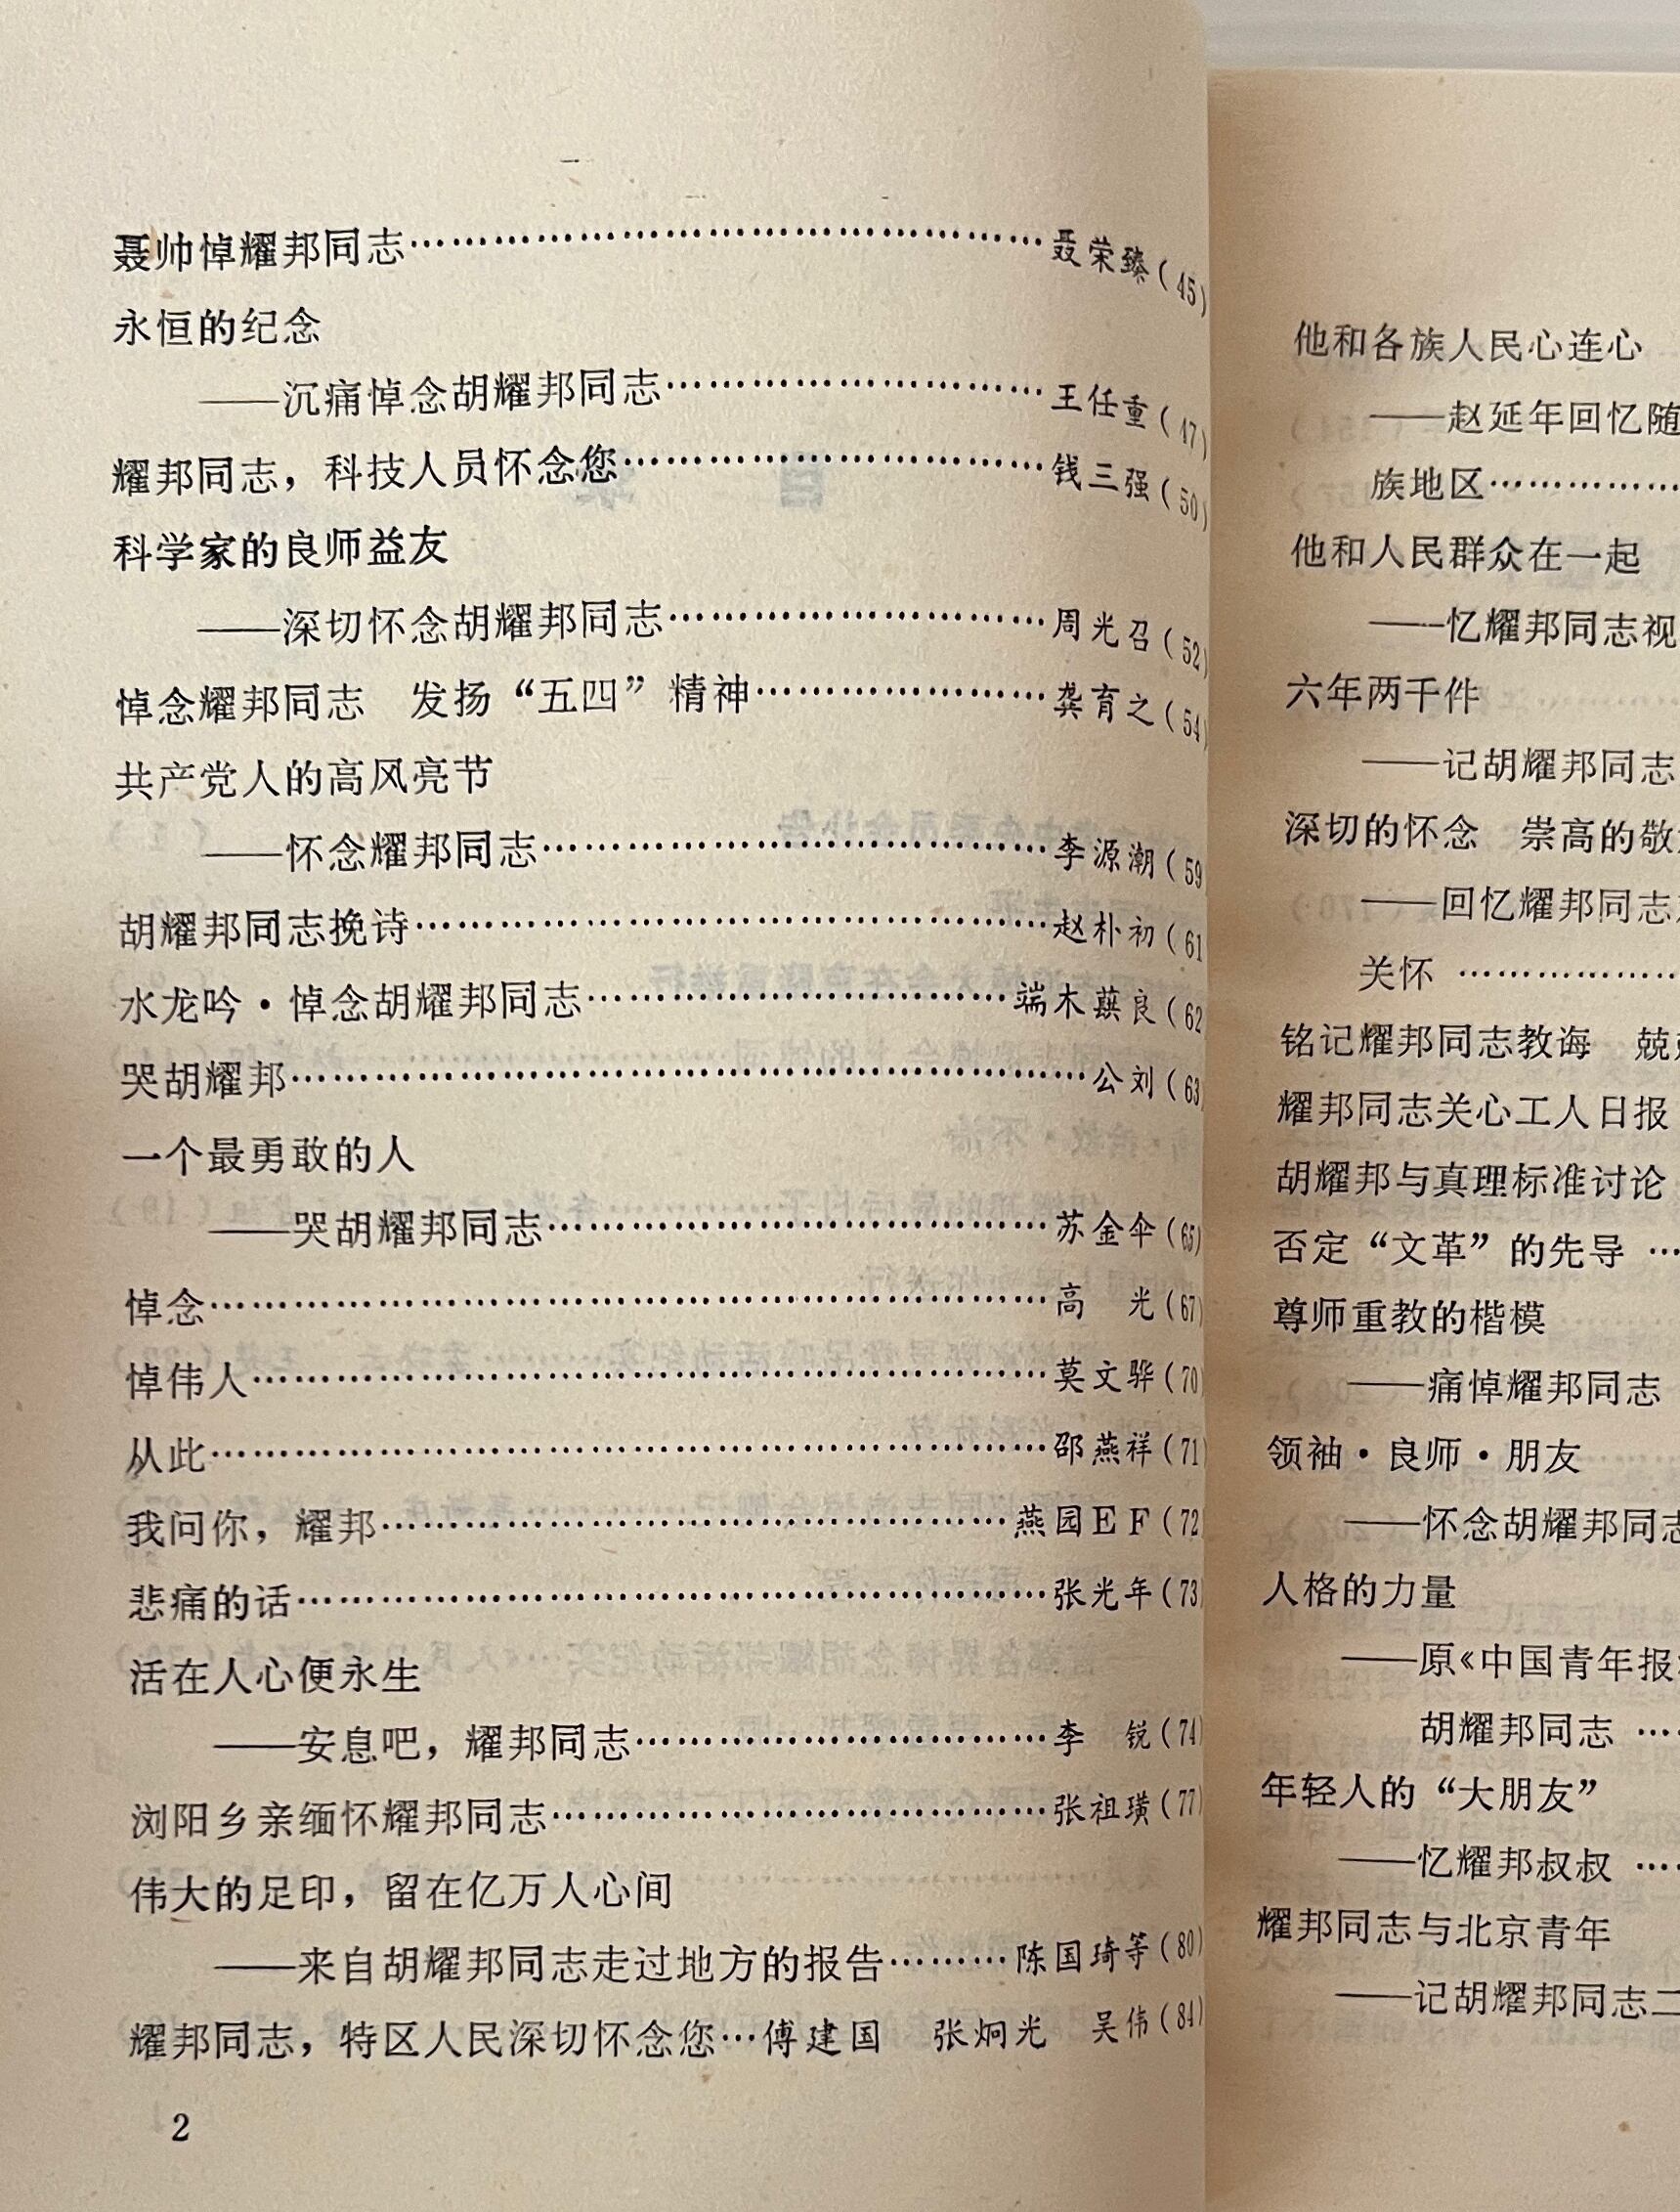 聂帅悼耀邦同志……………………………………聂荣臻(45)
永恒的纪念
——沉痛悼念胡耀邦同志……………………王任重(47)
耀邦同志，科技人员怀念您………………………钱三强(50)
科学家的良师益友
——深切怀念胡耀邦同志……………………周光召(52)
悼念耀邦同志　发扬“五四”精神………………龚育之(54
共产党人的高风亮节
——怀念耀邦同志……………………………李源潮(59
胡耀邦同志挽诗……………………………………赵朴初(61
水龙吟·悼念胡耀邦同志………………………端木蕻良(62
哭胡耀邦……………………………………………公刘(63
一个最勇敢的人
——哭胡耀邦同志……………………………苏金伞(65)
悼念………………………………………………高　光(67)
悼伟人……………………………………………莫文骅(70)
从此………………………………………………邵燕祥(71)
我问你，耀邦…………………………………燕园ＥＦ(72
悲痛的话…………………………………………张光年(73)
活在人心便永生
——安息吧，耀邦同志………………………李　锐(74)
浏阳乡亲缅怀耀邦同志…………………………张祖璜(77)
伟大的足印，留在亿万人心间
——来自胡耀邦同志走过地方的报告………陈国琦等(80)
耀邦同志，特区人民深切怀念您…傅建国　张炯光　吴伟(84)
2
他和各族人民心连心
——赵延年回忆随
族地区……………
他和人民群众在一起
——忆耀邦同志视
六年两千件
——记胡耀邦同志
深切的怀念　崇高的敬
——回忆耀邦同志
关怀 ………………
铭记耀邦同志教诲　兢
耀邦同志关心工人日报
胡耀邦与真理标准讨论
否定“文革”的先导 …
尊师重教的楷模
——痛悼耀邦同志
领袖·良师·朋友
——怀念胡耀邦同志
人格的力量
——原《中国青年报
胡耀邦同志 …
年轻人的“大朋友”
——忆耀邦叔叔 …
耀邦同志与北京青年
——记胡耀邦同志二